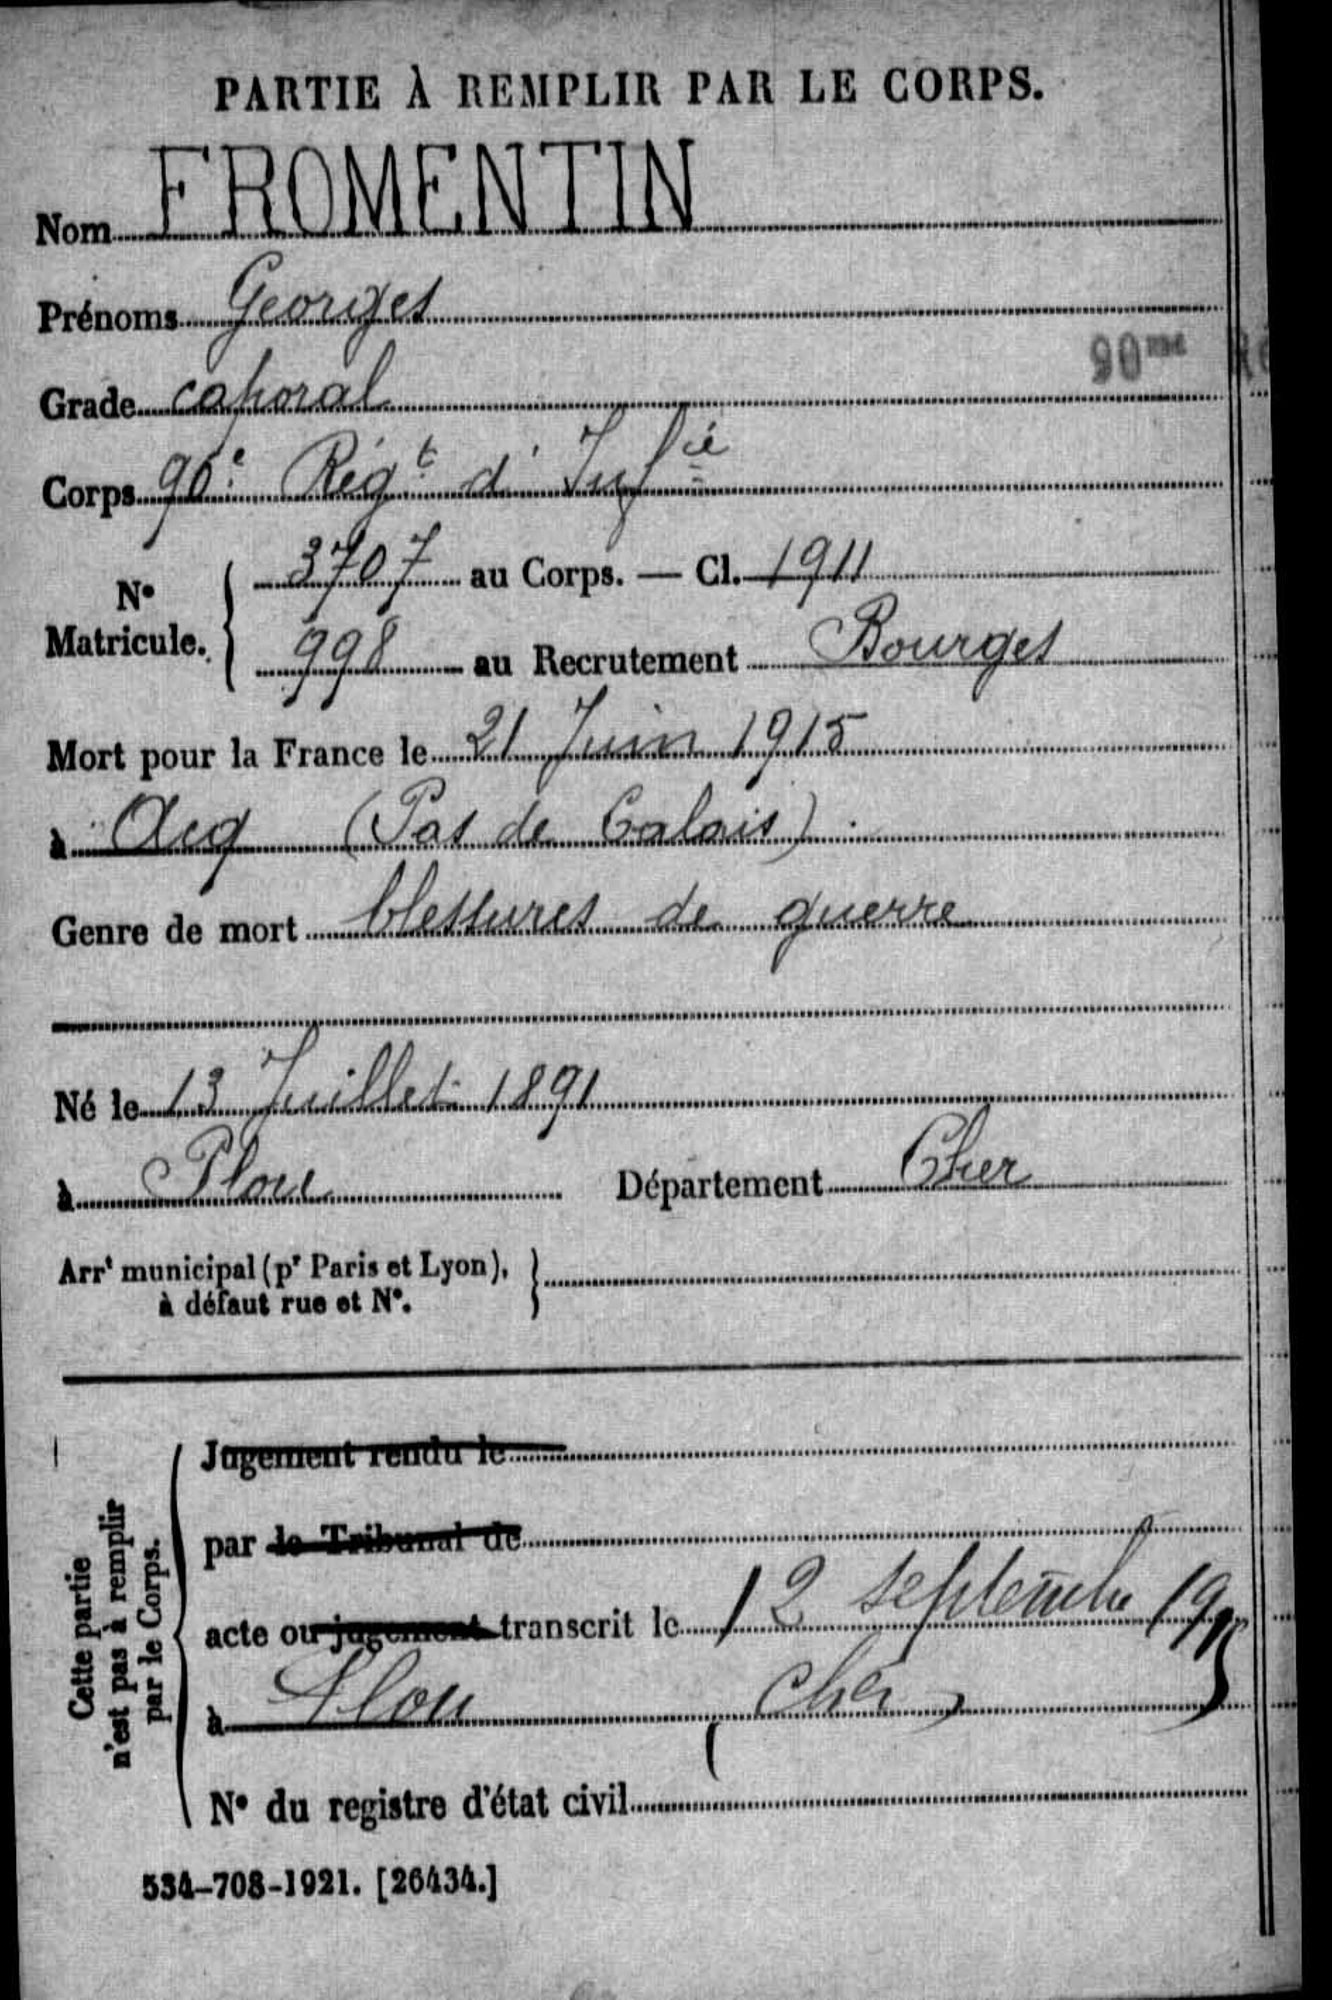 PARTIE À REMPLIR PAR LE CORPS.
Nom FROMENTIN
Prénoms Georges
90me
Grade caporal
Corps 90e Régt d'Infie
No Matricule. 3707 au Corps. — Cl. 1911
998 au Recrutement Bourges
Mort pour la France le 21 Juin 1915
à Acq (Pas de Calais)
Genre de mort blessures de guerre
Né le 13 Juillet 1891
à Plou Département Cher
Arrt municipal (pr Paris et Lyon), à défaut rue et No.
Cette partie n'est pas à remplir par le Corps.
Jugement rendu le
par le Tribunal de
acte ou jugement transcrit le 12 septembre 1915
à Plou (Cher)
No du registre d'état civil
534-708-1921. [26434.]